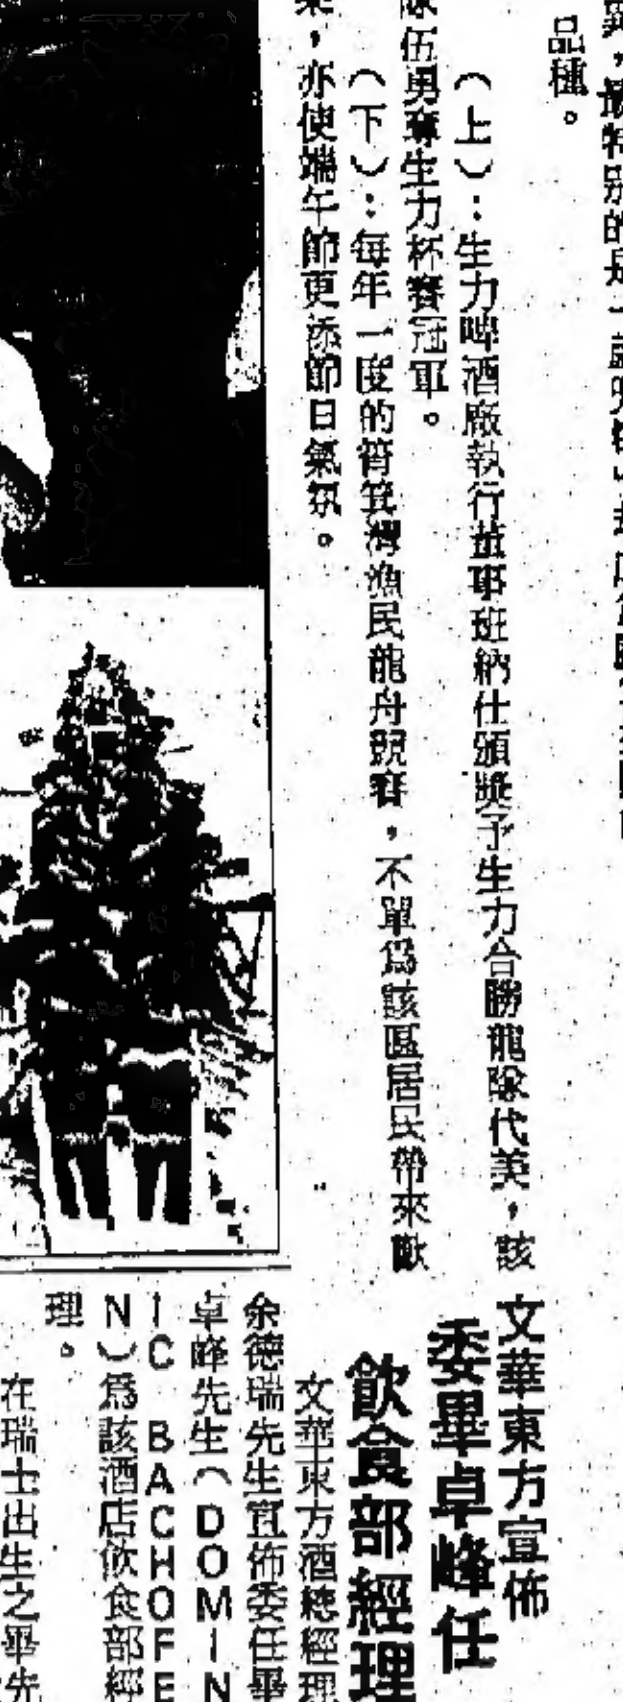 品種。
（上）：生力啤酒廠執行董事班納仕頒獎予生力合勝龍隊代美，該
隊伍勇奪生力杯賽冠軍。
（下）：每年一度的筲箕灣漁民龍舟競賽，不單為該區居民帶來歡
，亦使端午節更添節日氣氛。
文華東方宣佈
委畢卓峰任
飲食部經理
文華東方酒總經理
余德瑞先生宣佈委任畢
卓峰先生（DOMIN
IC BACHOFE
N）為該酒店飲食部經
理。
在瑞士出生之畢先